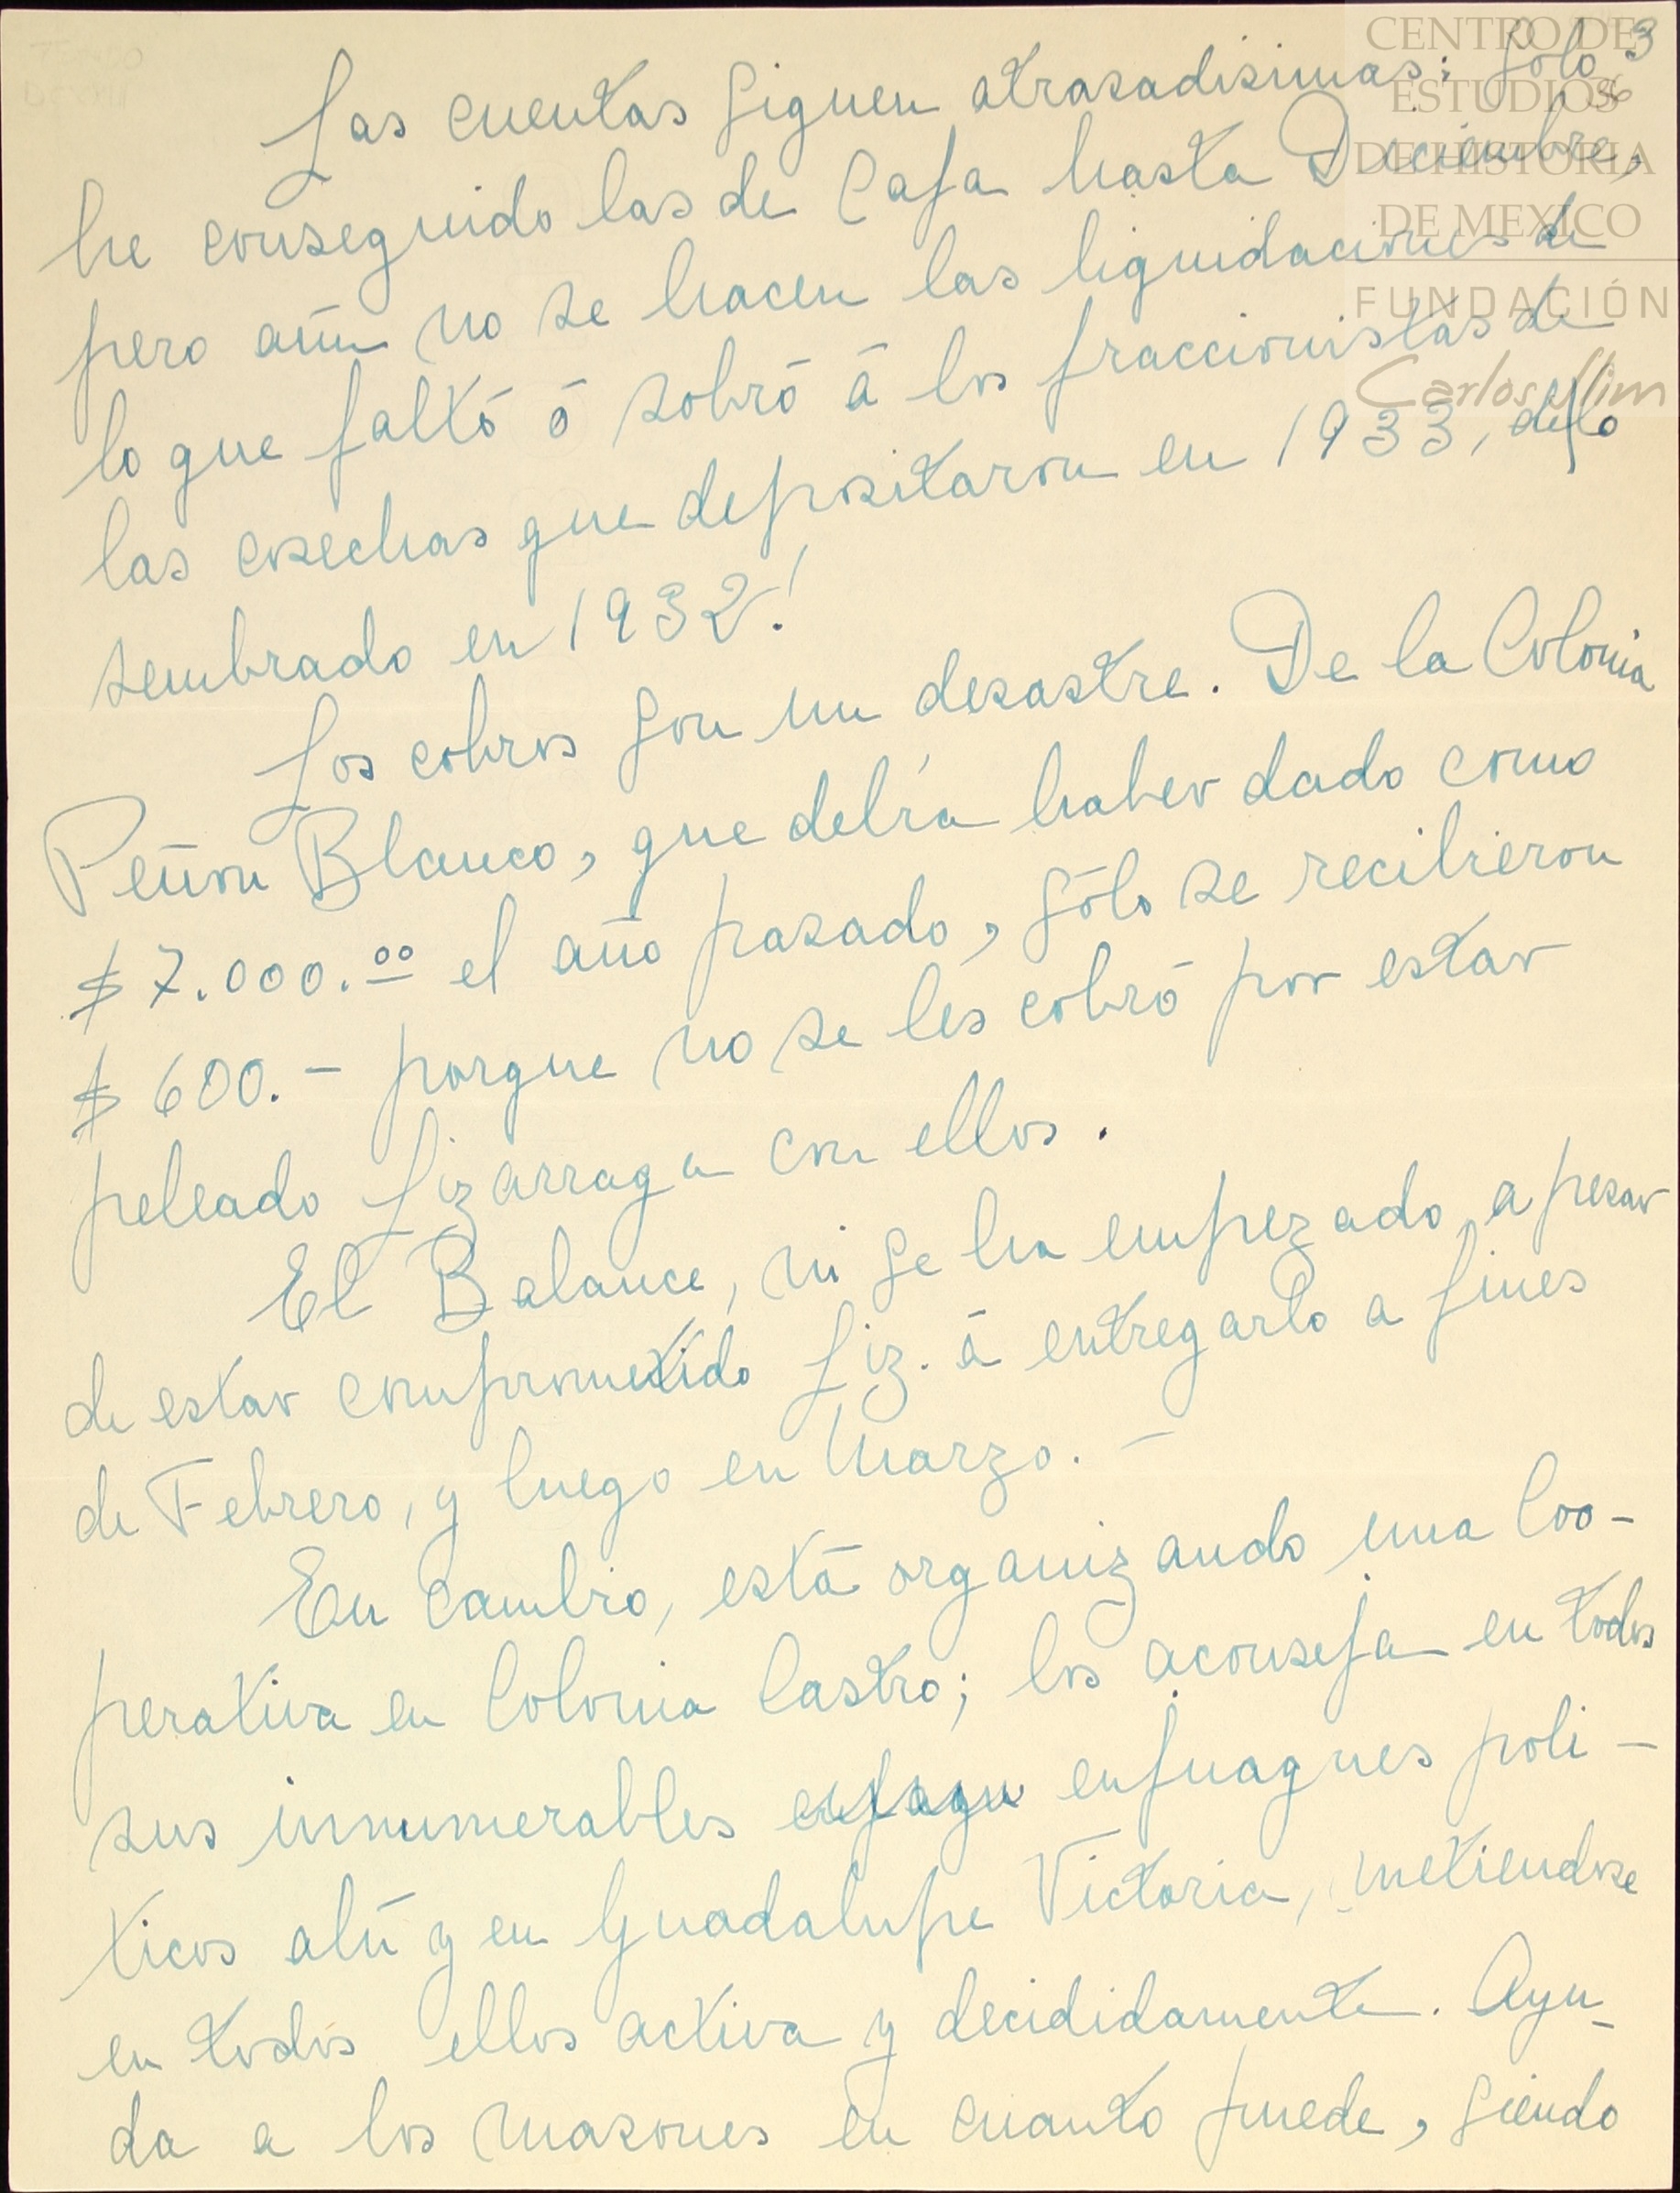 CENTRO DE
ESTUDIOS
DE HISTORIA
DE MEXICO
FUNDACIÓN
Carlos Slim
3
Las cuentas siguen atrasadisimas: Sólo
he conseguido las de Caja hasta Diciembre,
pero aún no se hacen las liquidaciones de
lo que faltó ó sobró á los fraccionistas de
las cosechas que depositaron en 1933, de lo
sembrado en 1932!
Los cobros son un desastre. De la Colonia
Peñon Blanco, que debía haber dado como
$ 7.000.00 el año pasado, sólo se recibieron
$ 600.- porque no se les cobró por estar
peleado Lizarraga con ellos.
El Balance, ni se ha empezado, a pesar
de estar comprometido Liz. á entregarlo a fines
de Febrero, y luego en Marzo. -
En cambio, está organizando una Coo-
perativa en Colonia Castro; los aconseja en todos
sus innumerables enjuagues poli-
ticos ahí y en Guadalupe Victoria, metiendose
en todos ellos activa y decididamente. Ayu-
da a los masones en cuanto puede, siendo